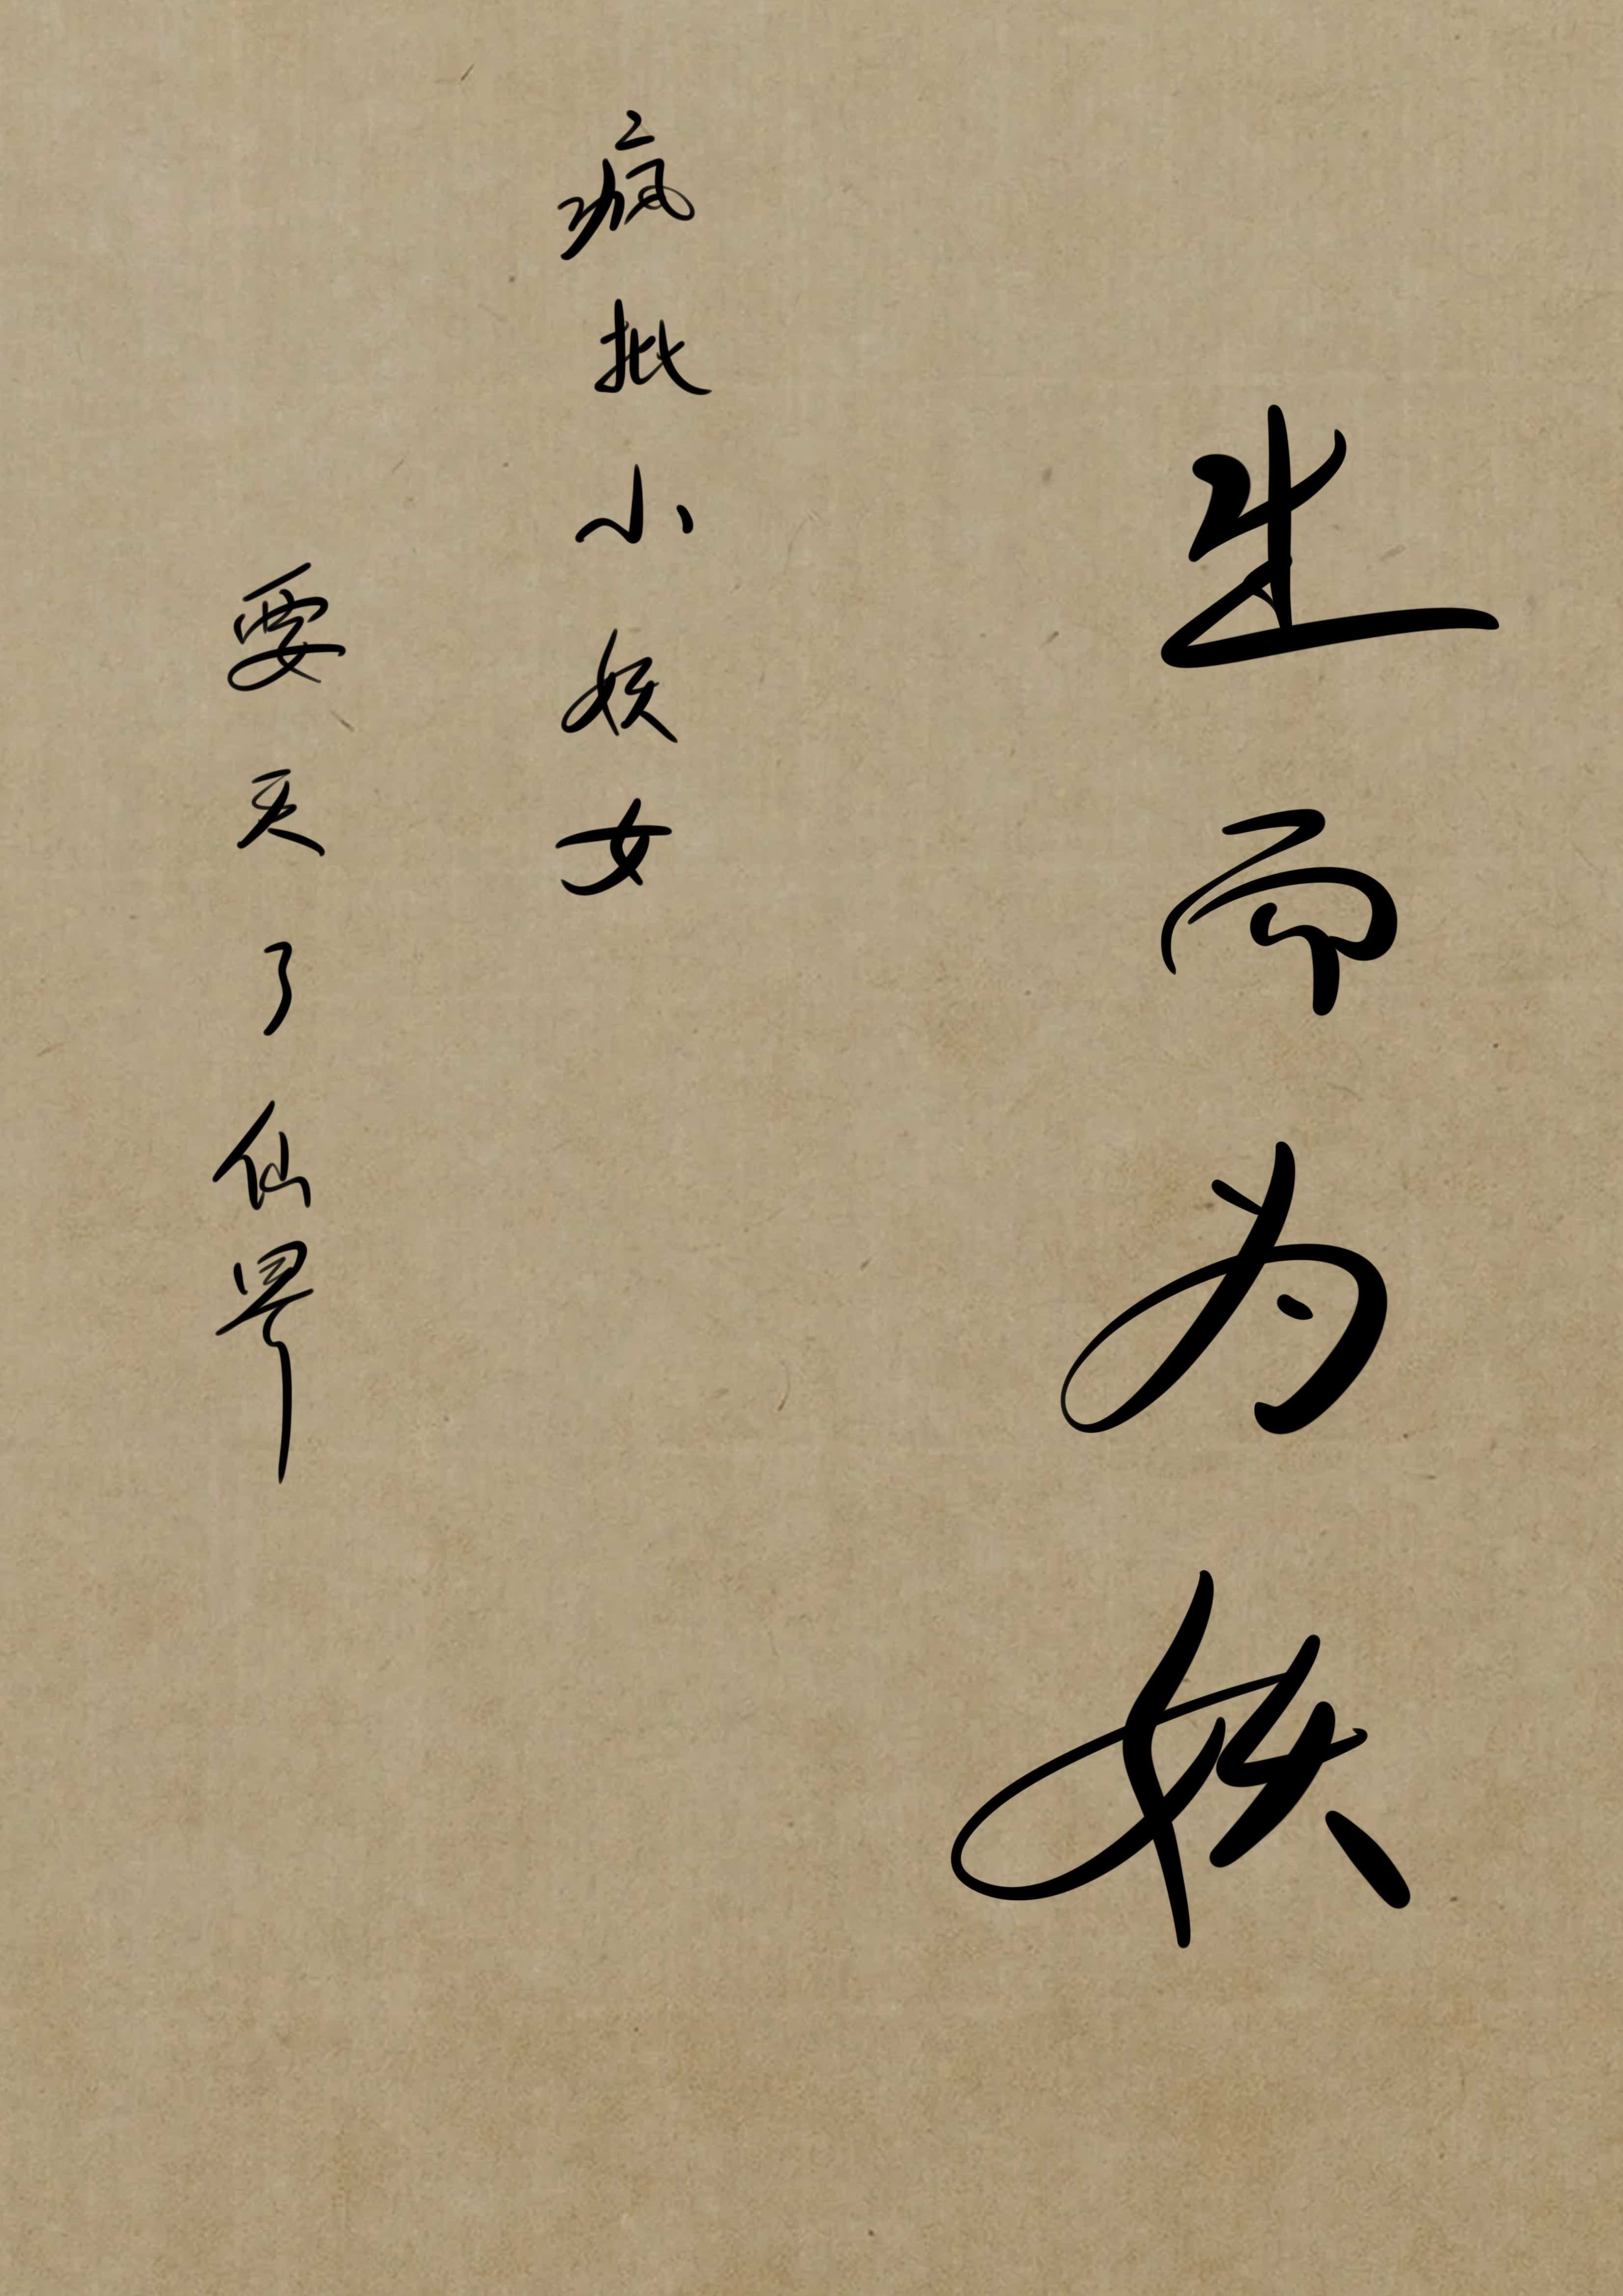 生而为妖
疯批小妖女
要灭了仙界